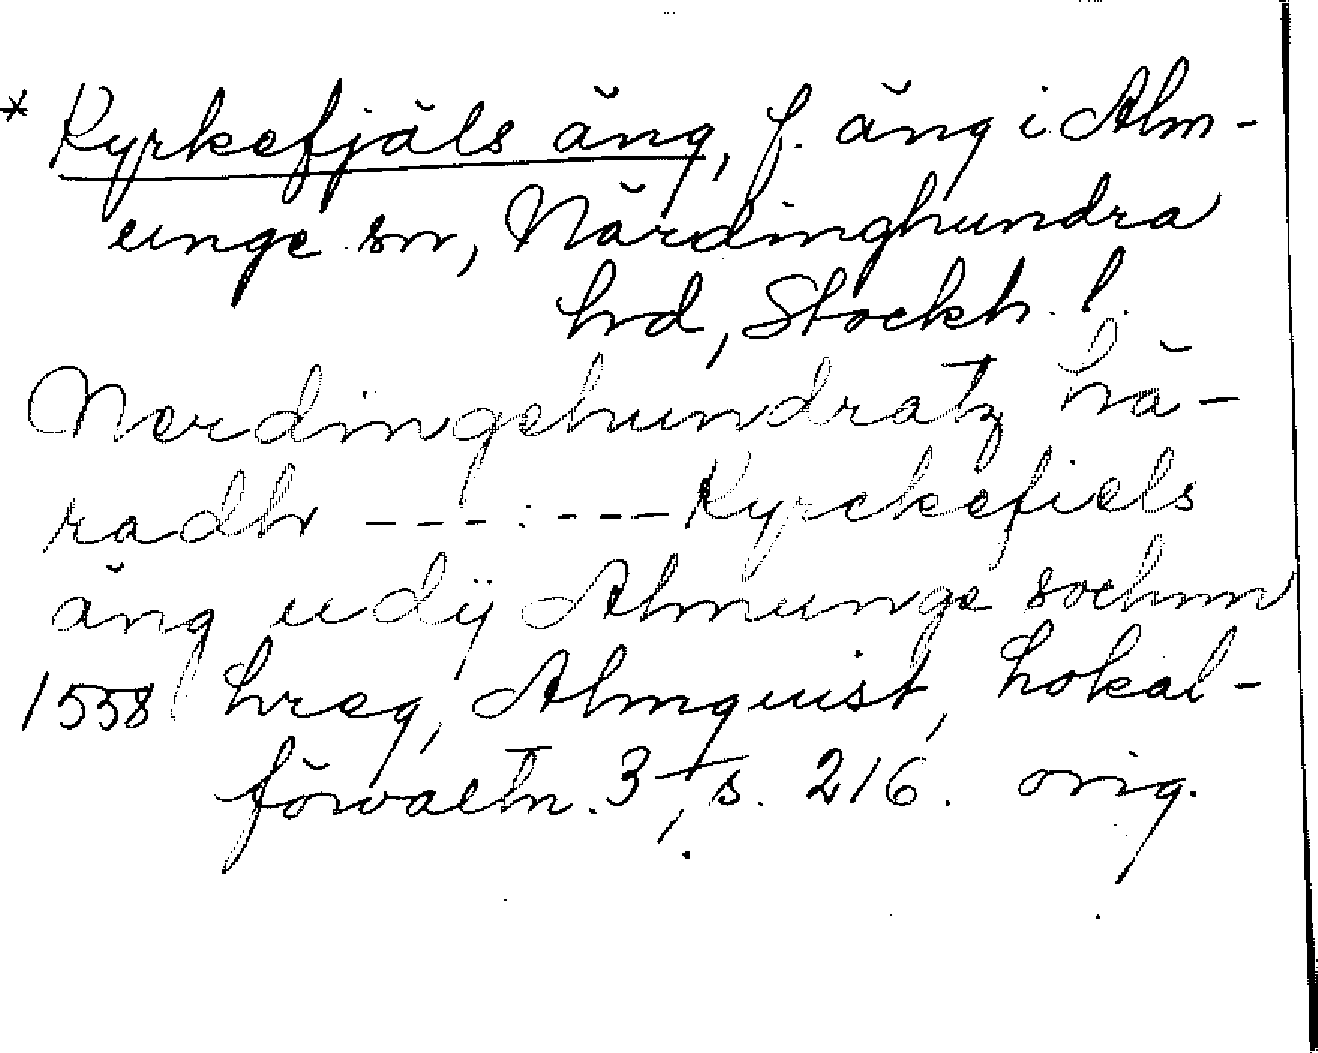 * Kyrkefjäls äng, f. äng i Alm-
unge sn, Närdinghundra
hrd, Stockh. l.
Nerdingehundratz hä-
radhr ---:--- Kyrckefiels
äng udij Almunge sochnn
1558 hreg, Almquist, Lokal-
förvaltn. 3, s. 216. orig.